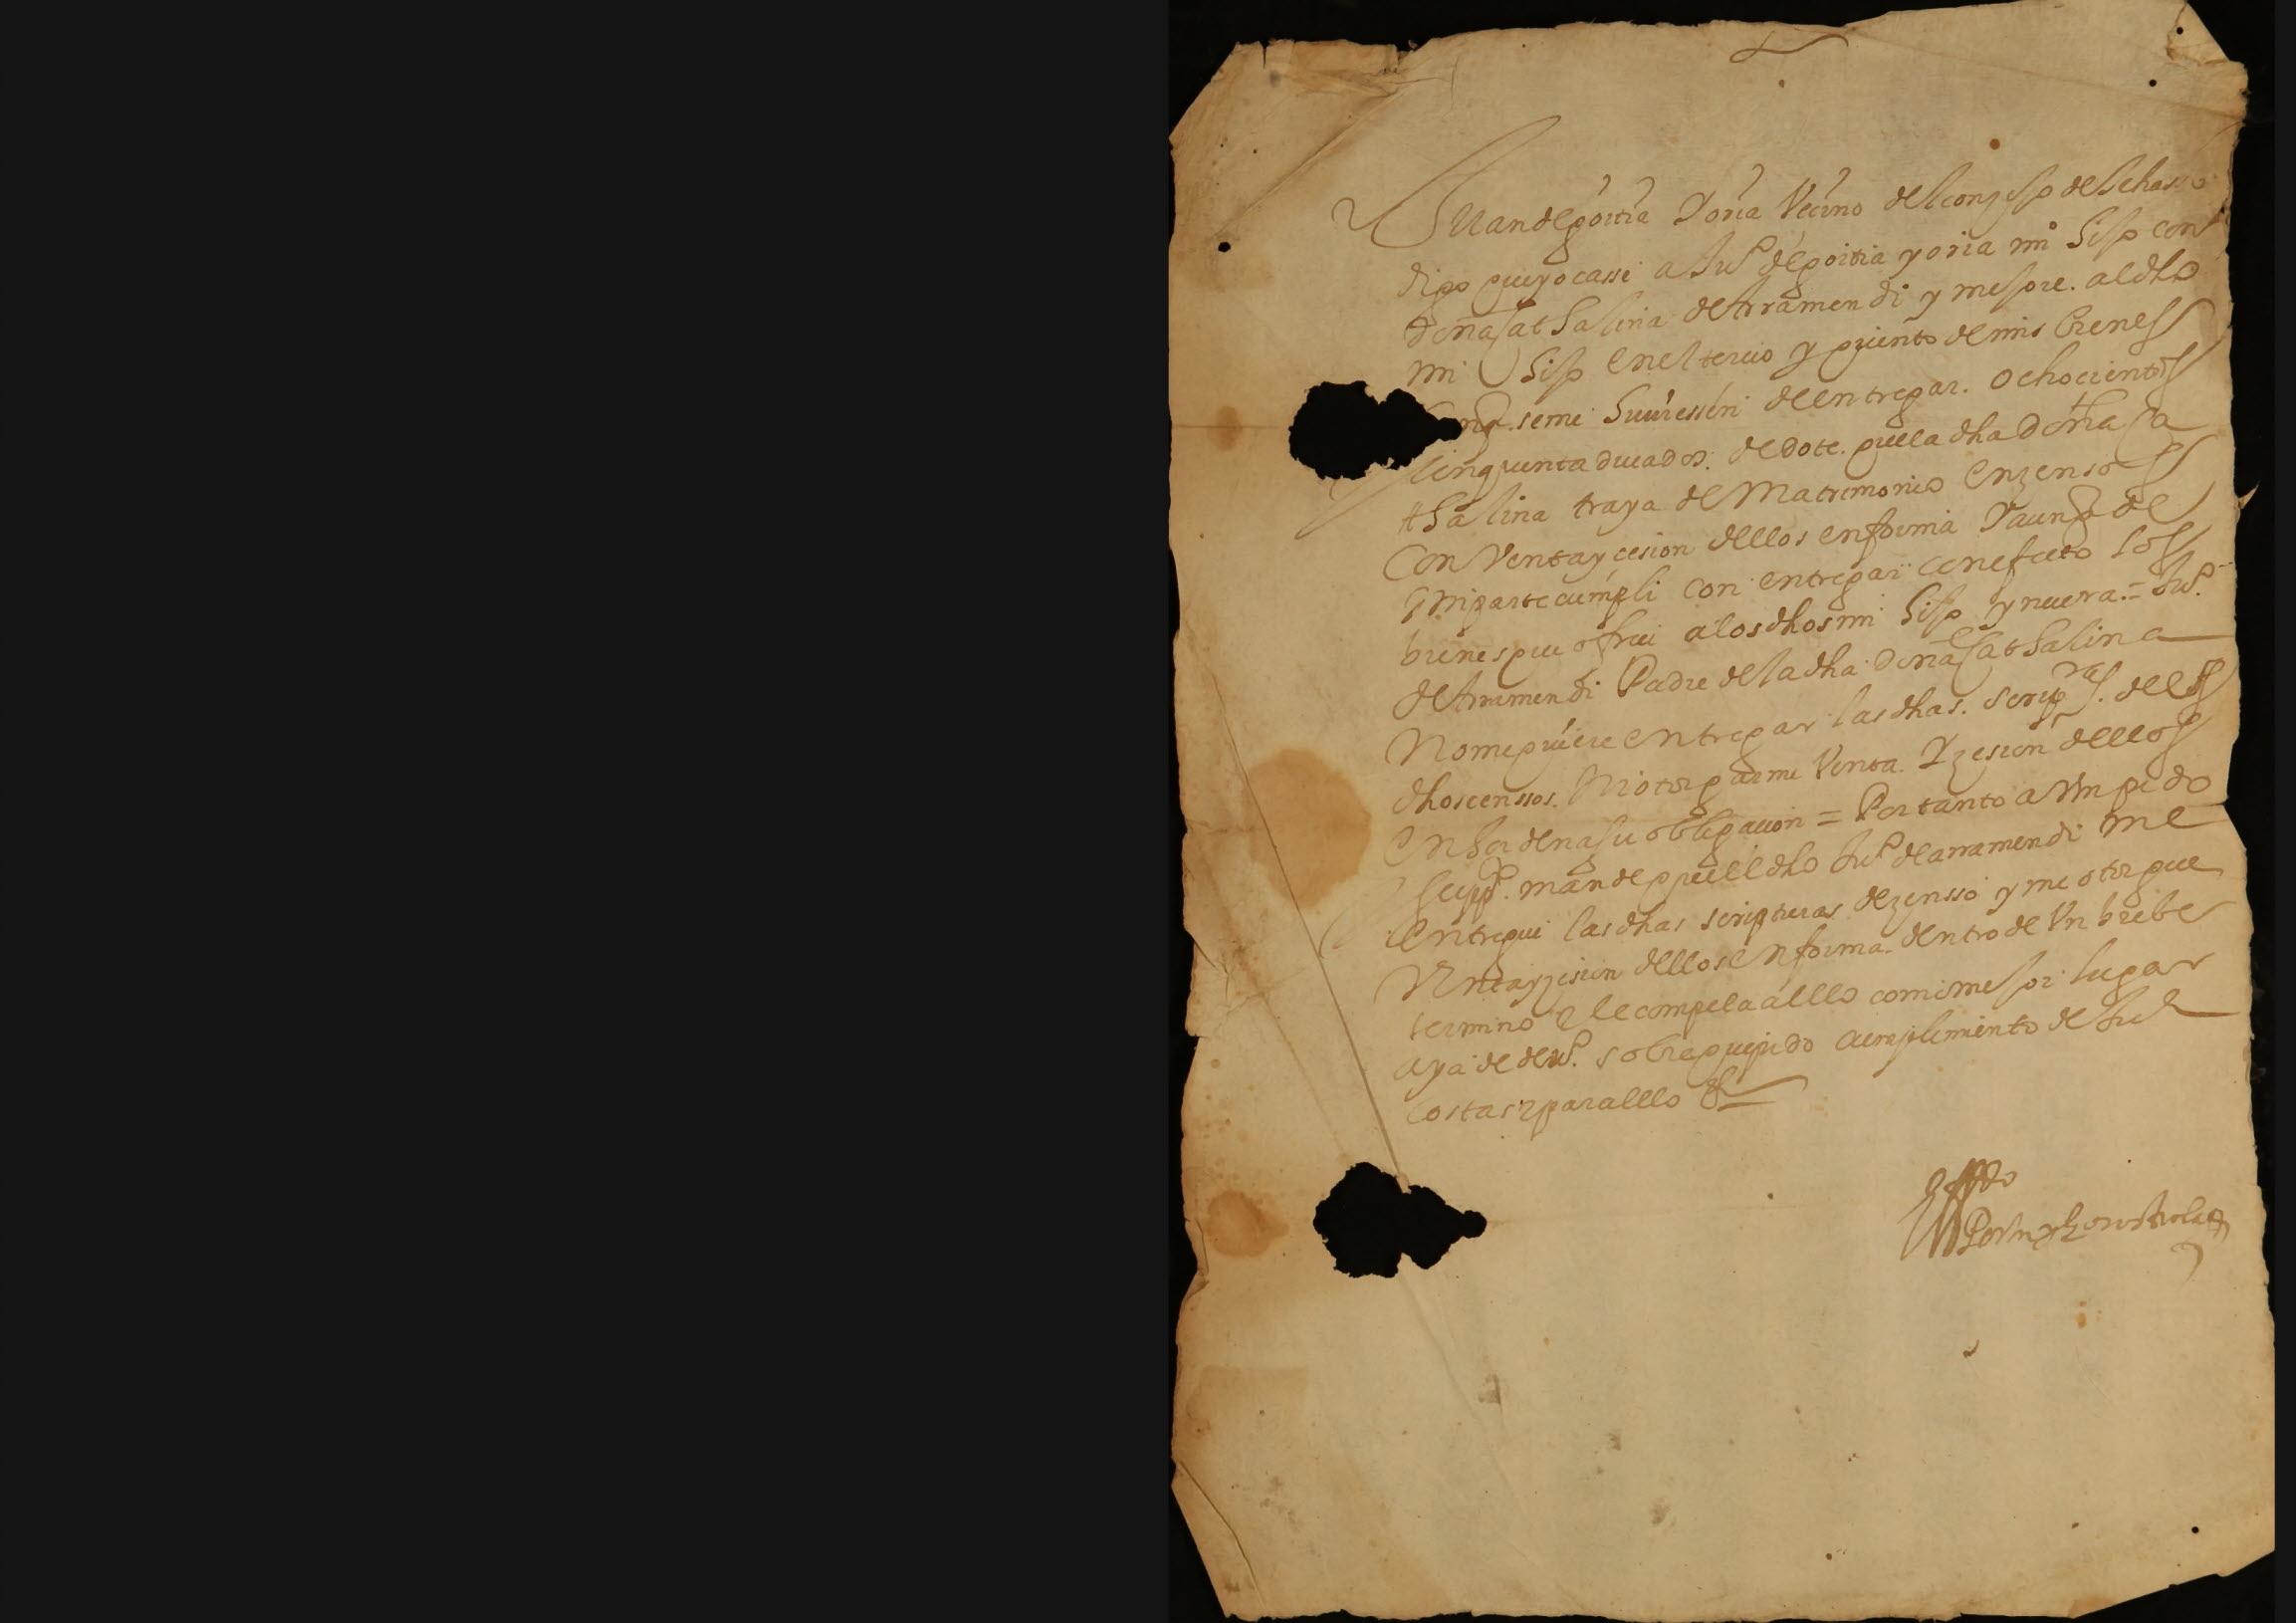 Juan de goitia Yoria Vecino del conzejo de
digo que yo casse a Juº de goitia y oria mi hijo con
doña Cathalina de Arramendi y mejore. al dho
mi hijo en el tercio y quinto de mis bienes
se me huuiessen de entregar. ochocientos
cinquenta ducados. de dote. que la dha doña Ca
thalina traya de Matrimonio en zensos
Con Venta y cesion dellos en forma Y aunq de
mi parte cumpli con entregar en efecto los
bienes que ofreci a los dhos mi hijo y nuera. = Juº.
de Arramendi Padre de la dha doña Cathalina
No me quiere entregar las dhas. scripras. de los
dhos censsos. Ni otorgarme Venta. Y zesion dellos
en horden a su obligacion = Por tanto a Vm pido
suppco. mande que el dho Juº de arramendi me
entregue las dhas scripturas de zensso y me otorgue
Venta y zesion dellos en forma. dentro de Vn brebe
termino e le compela a ello como mejor lugar
aya de derº. sobre que pido cumplimiento de Jusª
costas y para ello &